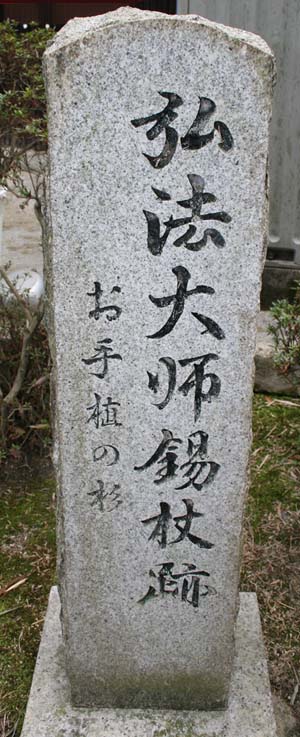 弘法大师錫杖跡
お手植の杉